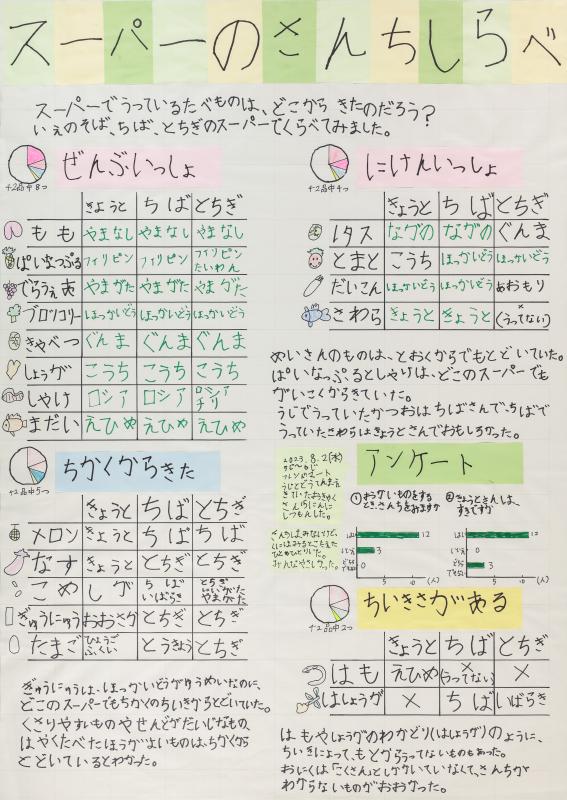 スーパーのさんちしらべ
スーパーでうっているたべものは、どこから きたのだろう?
いえのそば、ちば、とちぎのスーパーでくらべてみました。
ぜんぶいっしょ
42品中8つ
きょうと ちば とちぎ
もも やまなし やまなし やまなし
ぱいなっぷる フィリピン フィリピン フィリピン たいわん
でらうぇあ やまがた やまがた やまがた
ブロッコリー ほっかいどう ほっかいどう ほっかいどう
きゃべつ ぐんま ぐんま ぐんま
しょうが こうち こうち こうち
しゃけ ロシア ロシア ロシア チリ
まだい えひめ えひめ えひめ
にけんいっしょ
42品中4つ
きょうと ちば とちぎ
レタス ながの ながの ぐんま
とまと こうち ほっかいどう ほっかいどう
だいこん ほっかいどう ほっかいどう あおもり
さわら きょうと きょうと × (うってない)
めいさんのものは、とおくからでもとどいていた。
ぱいなっぷるとしゃけは、どこのスーパーでも
がいこくからきていた。
うじでうっていたかつおはちばさんで、ちばで
うっていたさわらはきょうとさんでおもしろかった。
ちかくからきた
42品中5つ
きょうと ちば とちぎ
メロン きょうと ちば ちば
なす きょうと とちぎ とちぎ
こめ しが ちば いばらき とちぎ にいがた やまがた
ぎゅうにゅう おおさか とちぎ とちぎ
たまご ひょうご ふくい とうきょう とちぎ
ぎゅうにゅうは、ほっかいどうがゆうめいなのに、
どこのスーパーでもちかくのちいきからとどいていた。
くさりやすいものや せんどがだいじなもの、
はやくたべたほうがよいものは、ちかくから
とどいているとわかった。
アンケート
2023.8.2(水)
フレンドマート
うじ
きていたおきゃく
さん15にんに
しつもんした。
①おかいものをする
ときさんちをみますか
②きょうとさんは、
すきですか
はい 12
いいえ 3
どちらでもない 0
5 10 (人)
はい 12
いいえ 0
どちらでもない 3
5 10 (人)
ちいきさがある
42品中2つ
きょうと ちば とちぎ
はも えひめ × (うってない) ×
はしょうが × ちば いばらき
はもやしょうがのわかどり(はしょうが)のように、
ちいきによって、もとからうってないものもあった。
おにくは「こくさん」としかかいていなくて、さんちが
わからないものがおおかった。